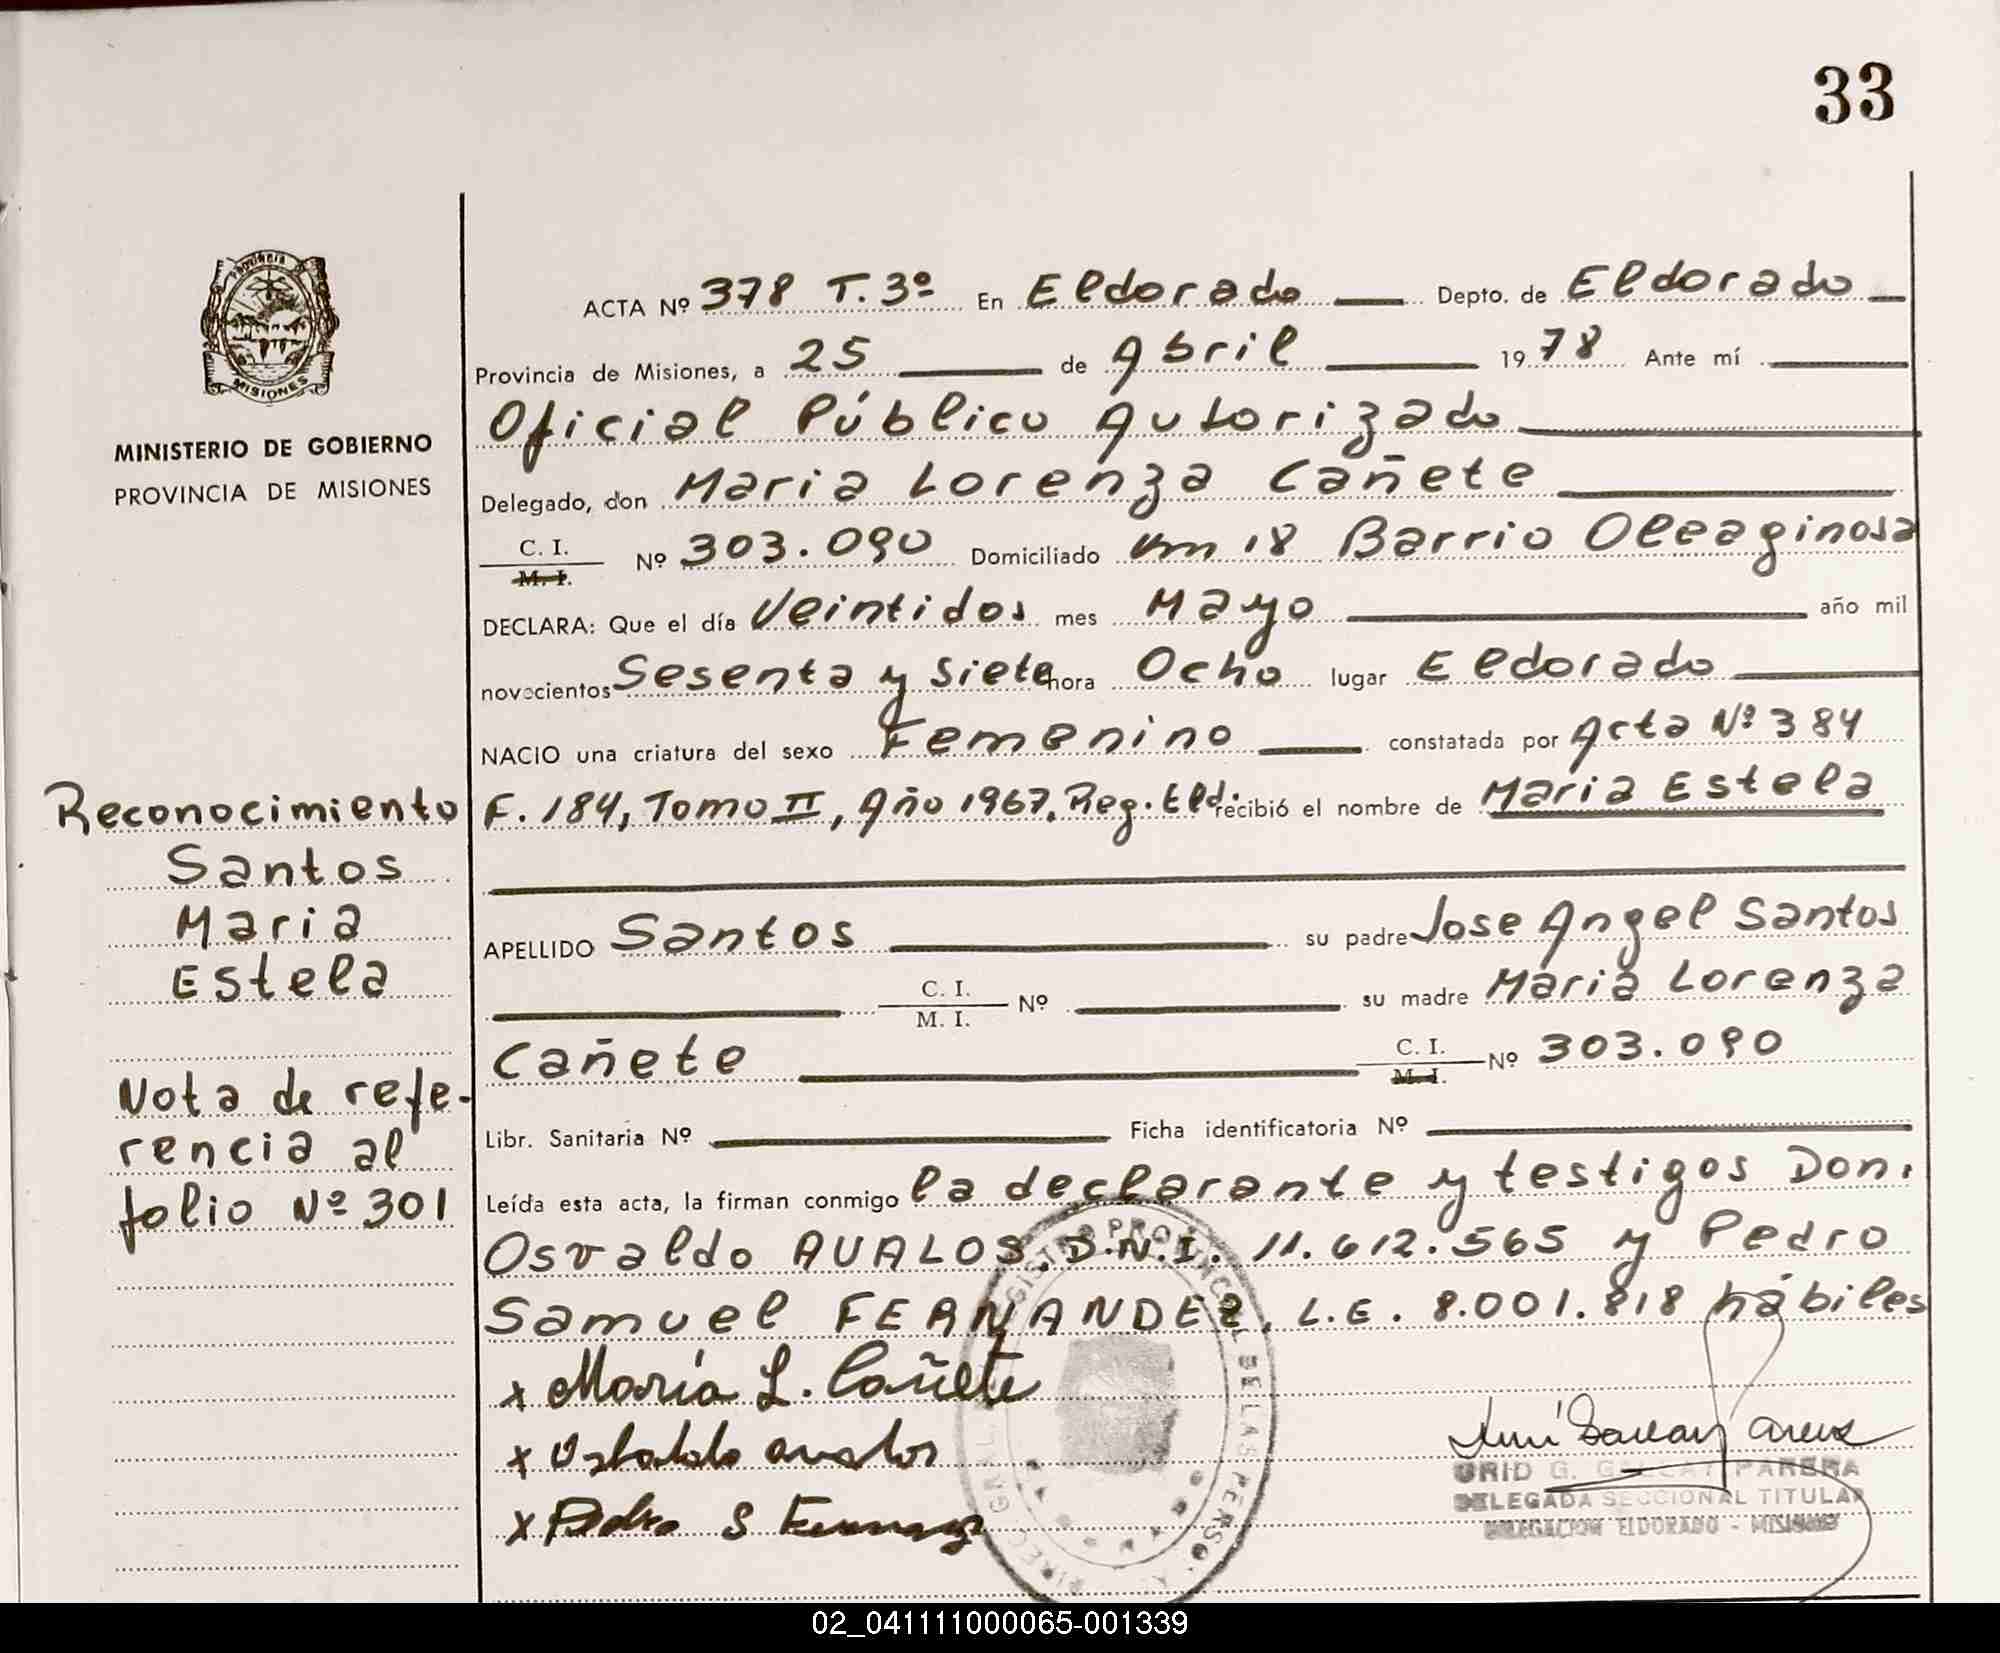 33
Provincia
MISIONES
MINISTERIO DE GOBIERNO
PROVINCIA DE MISIONES
ACTA Nº 378 T. 3º En Eldorado Depto. de Eldorado
Provincia de Misiones, a 25 de Abril 1978 Ante mí
Oficial Público Autorizado
Delegado, don Maria Lorenza Cañete
C. I.
M. I. Nº 303.090 Domiciliado Km 18 Barrio Oleaginosa
DECLARA: Que el día Veintidos mes Mayo año mil
novecientos Sesenta y Siete hora Ocho lugar Eldorado
NACIO una criatura del sexo Femenino constatada por Acta Nº 384
F. 184, Tomo II, Año 1967, Reg. Eld. recibió el nombre de Maria Estela
APELLIDO Santos su padre Jose Angel Santos
C. I.
M. I. Nº su madre Maria Lorenza
Cañete C. I.
M. I. Nº 303.090
Libr. Sanitaria Nº Ficha identificatoria Nº
Leída esta acta, la firman conmigo la declarante y testigos Don.
Osvaldo AVALOS, D.N.I. 11.612.565 y Pedro
Samuel FERNANDEZ, L.E. 8.001.818 hábiles
x Maria L. Cañete
x Osbaldo avalos
x Pedro S Fernandez
Reconocimiento
Santos
Maria
Estela
Nota de refe-
rencia al
folio Nº 301
G. PARERA
DELEGADA SECCIONAL TITULAR
DELEGACION ELDORADO - MISIONES
02_041111000065-001339